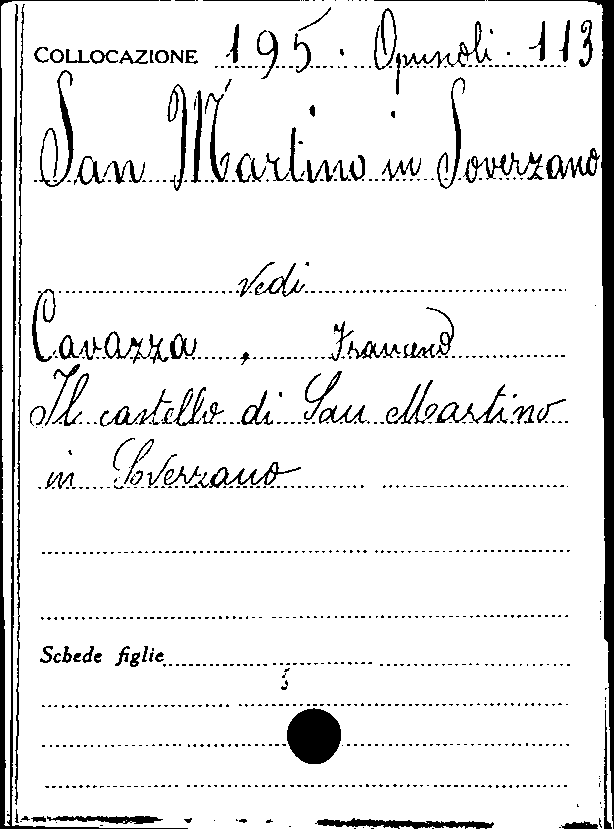 COLLOCAZIONE 195. Opuscoli. 113
San Martino in Soverzano
vedi
Cavazza, Francesco
Il castello di San Martino
in Soverzano
Schede figlie
5